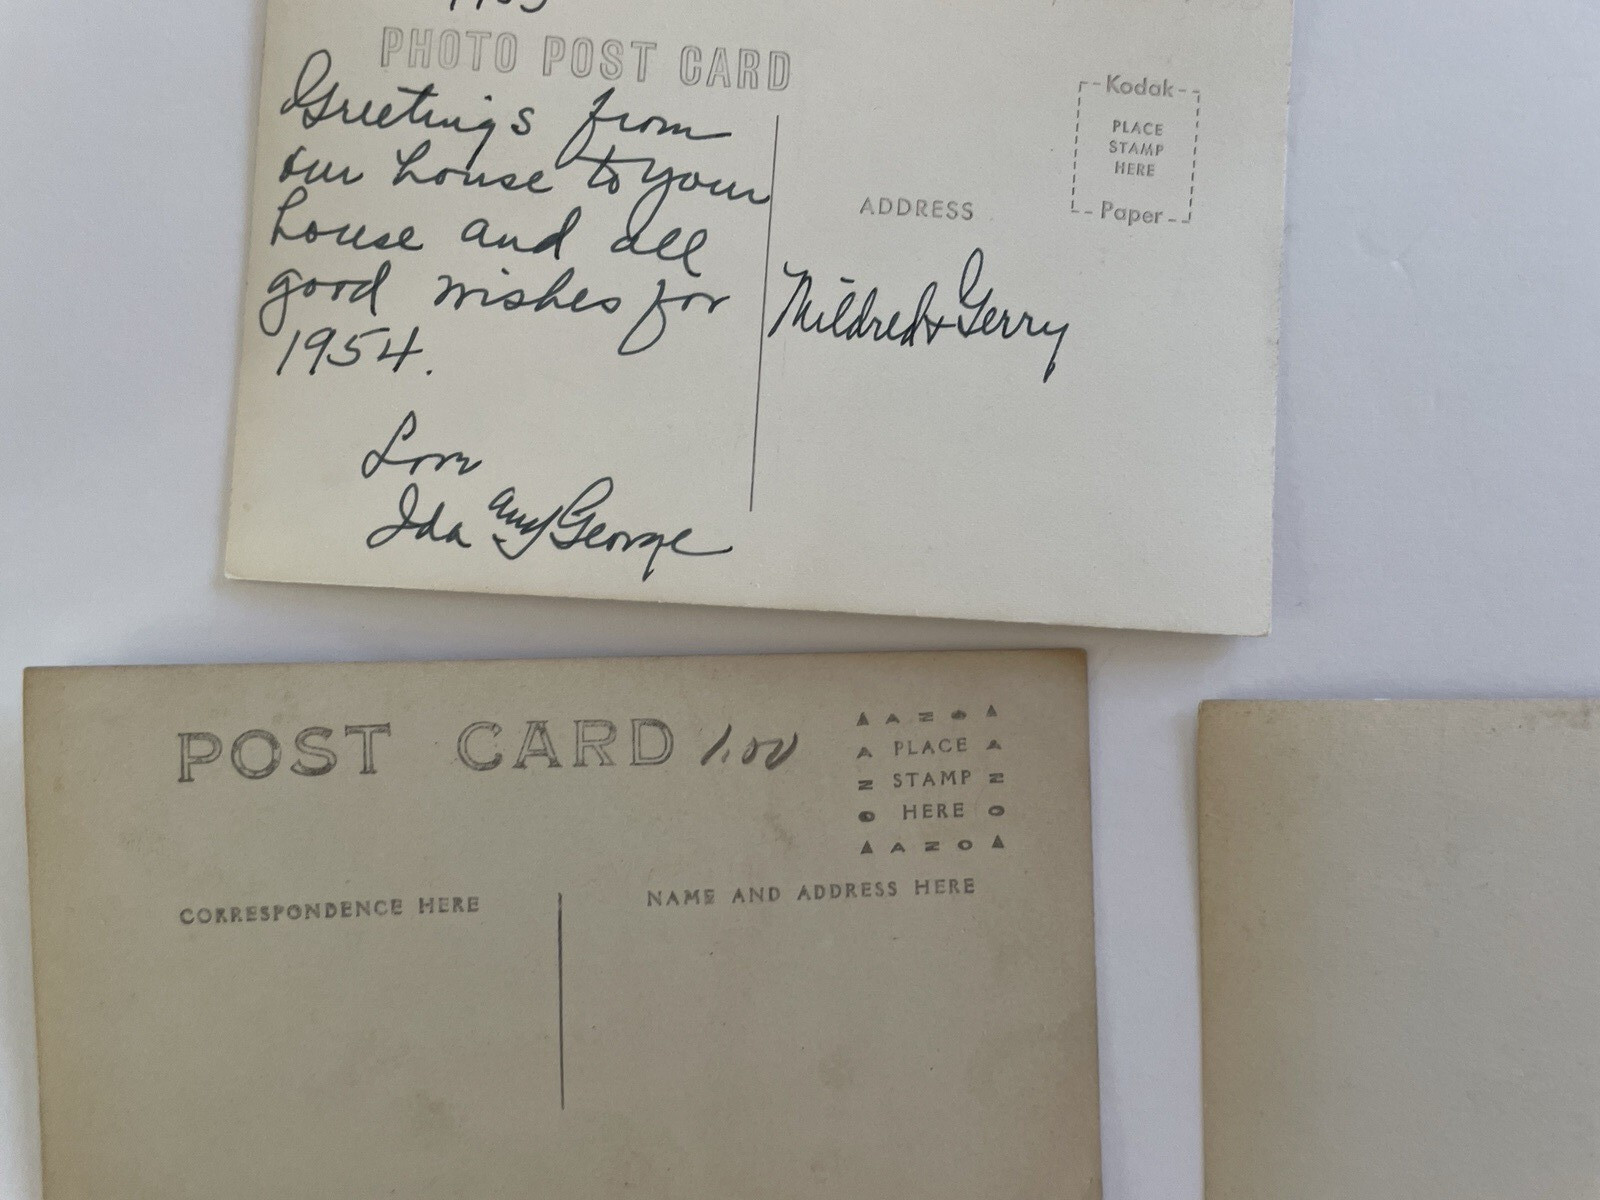 PHOTO POST CARD
Greetings from
our house to your
house and all
good wishes for
1954.
Love
Ida and George
Kodak
PLACE
STAMP
HERE
Paper
ADDRESS
Mildred & Gerry
POST CARD 1.00
AZO
PLACE
STAMP
HERE
AZO
AZO
AZO
CORRESPONDENCE HERE
NAME AND ADDRESS HERE